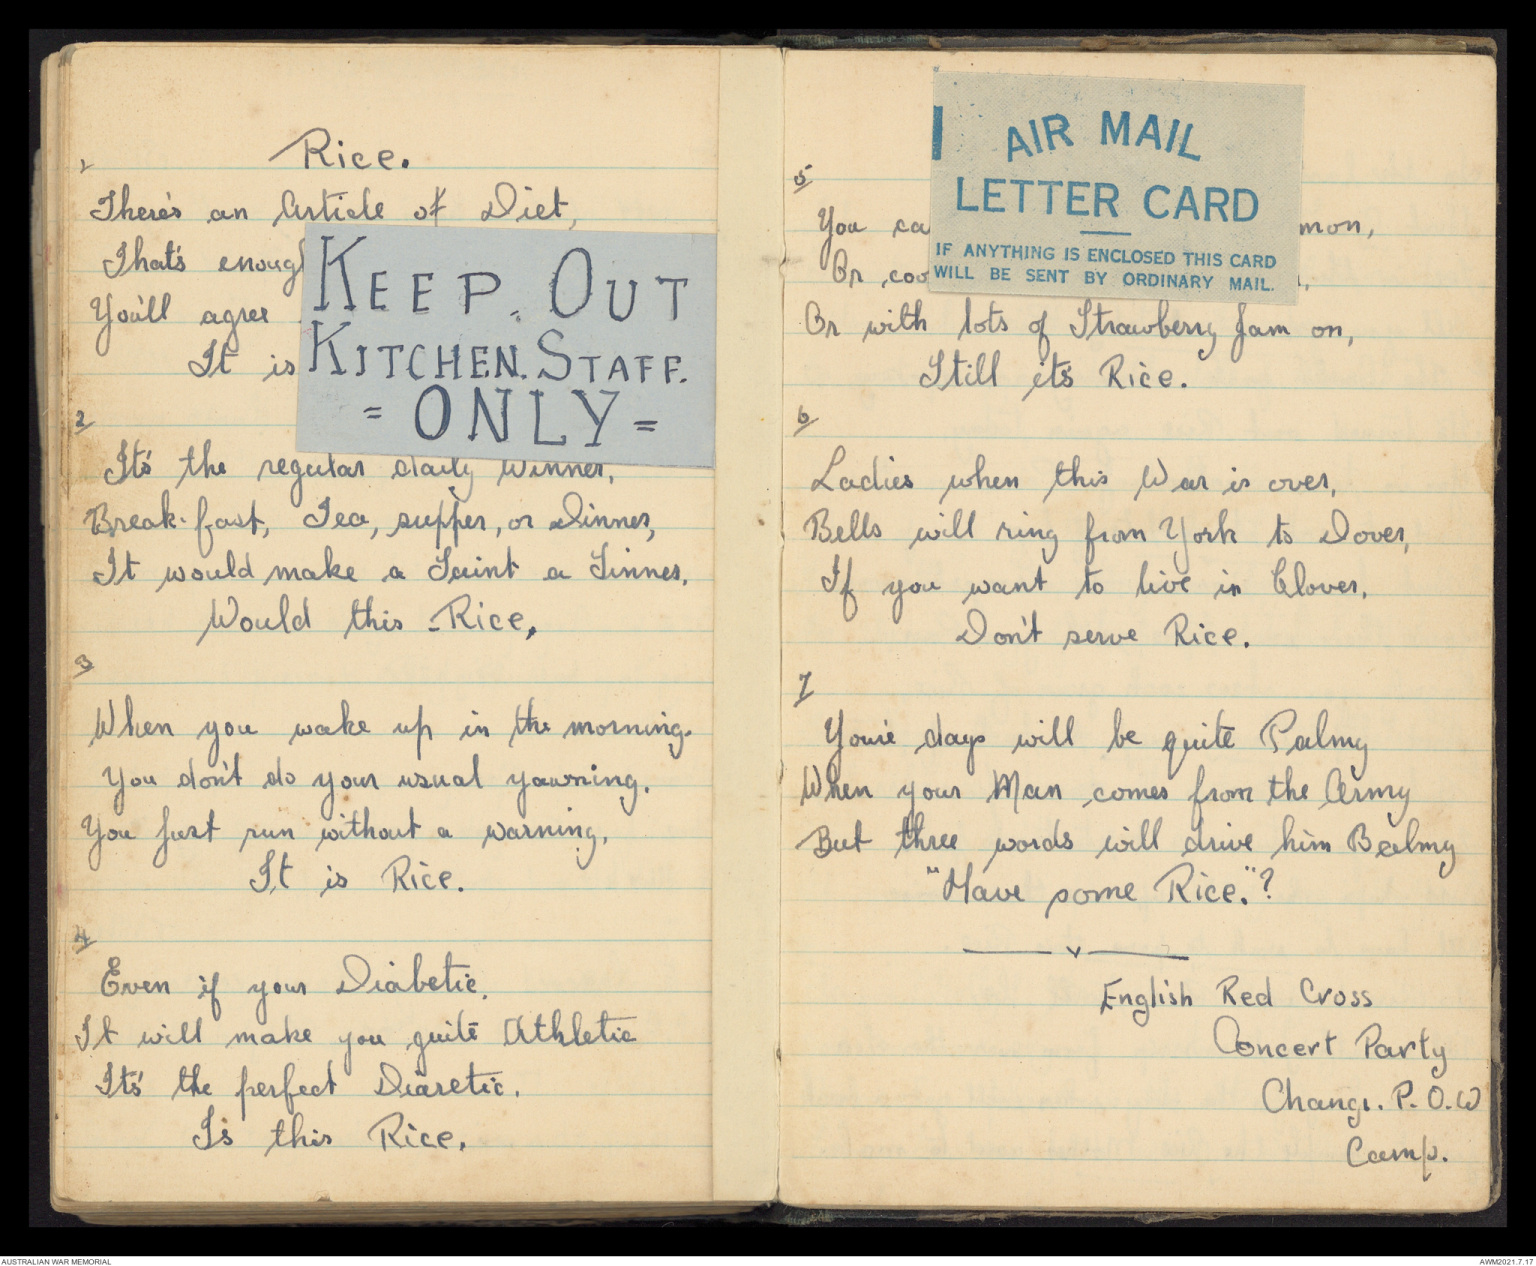 Rice.
1
There's an Article of Diet,
That's enough
You'll agree
It is
KEEP. OUT
KITCHEN. STAFF.
= ONLY =
2
It's the regular daily Winner,
Break-fast, Tea, supper, or Dinner,
It would make a Saint a Sinner,
Would this - Rice,
3
When you wake up in the morning.
You don't do your usual yawning.
You just run without a warning,
It is Rice.
4
Even if your Diabetic,
It will make you quite Athletic
It's the perfect Diaretic.
Is this Rice,
5
You
AIR MAIL
LETTER CARD
IF ANYTHING IS ENCLOSED THIS CARD
WILL BE SENT BY ORDINARY MAIL.
Or
Or with lots of Strawberry Jam on,
Still it's Rice.
6
Ladies when this War is over,
Bells will ring from York to Dover,
If you want to live in Clover,
Don't serve Rice.
7
Your'e days will be quite Palmy
When your Man comes from the Army
But three words will drive him Balmy
"Have some Rice."?
English Red Cross
Concert Party
Changi. P.O.W
Camp.
AUSTRALIAN WAR MEMORIAL
AWM2021.7.17